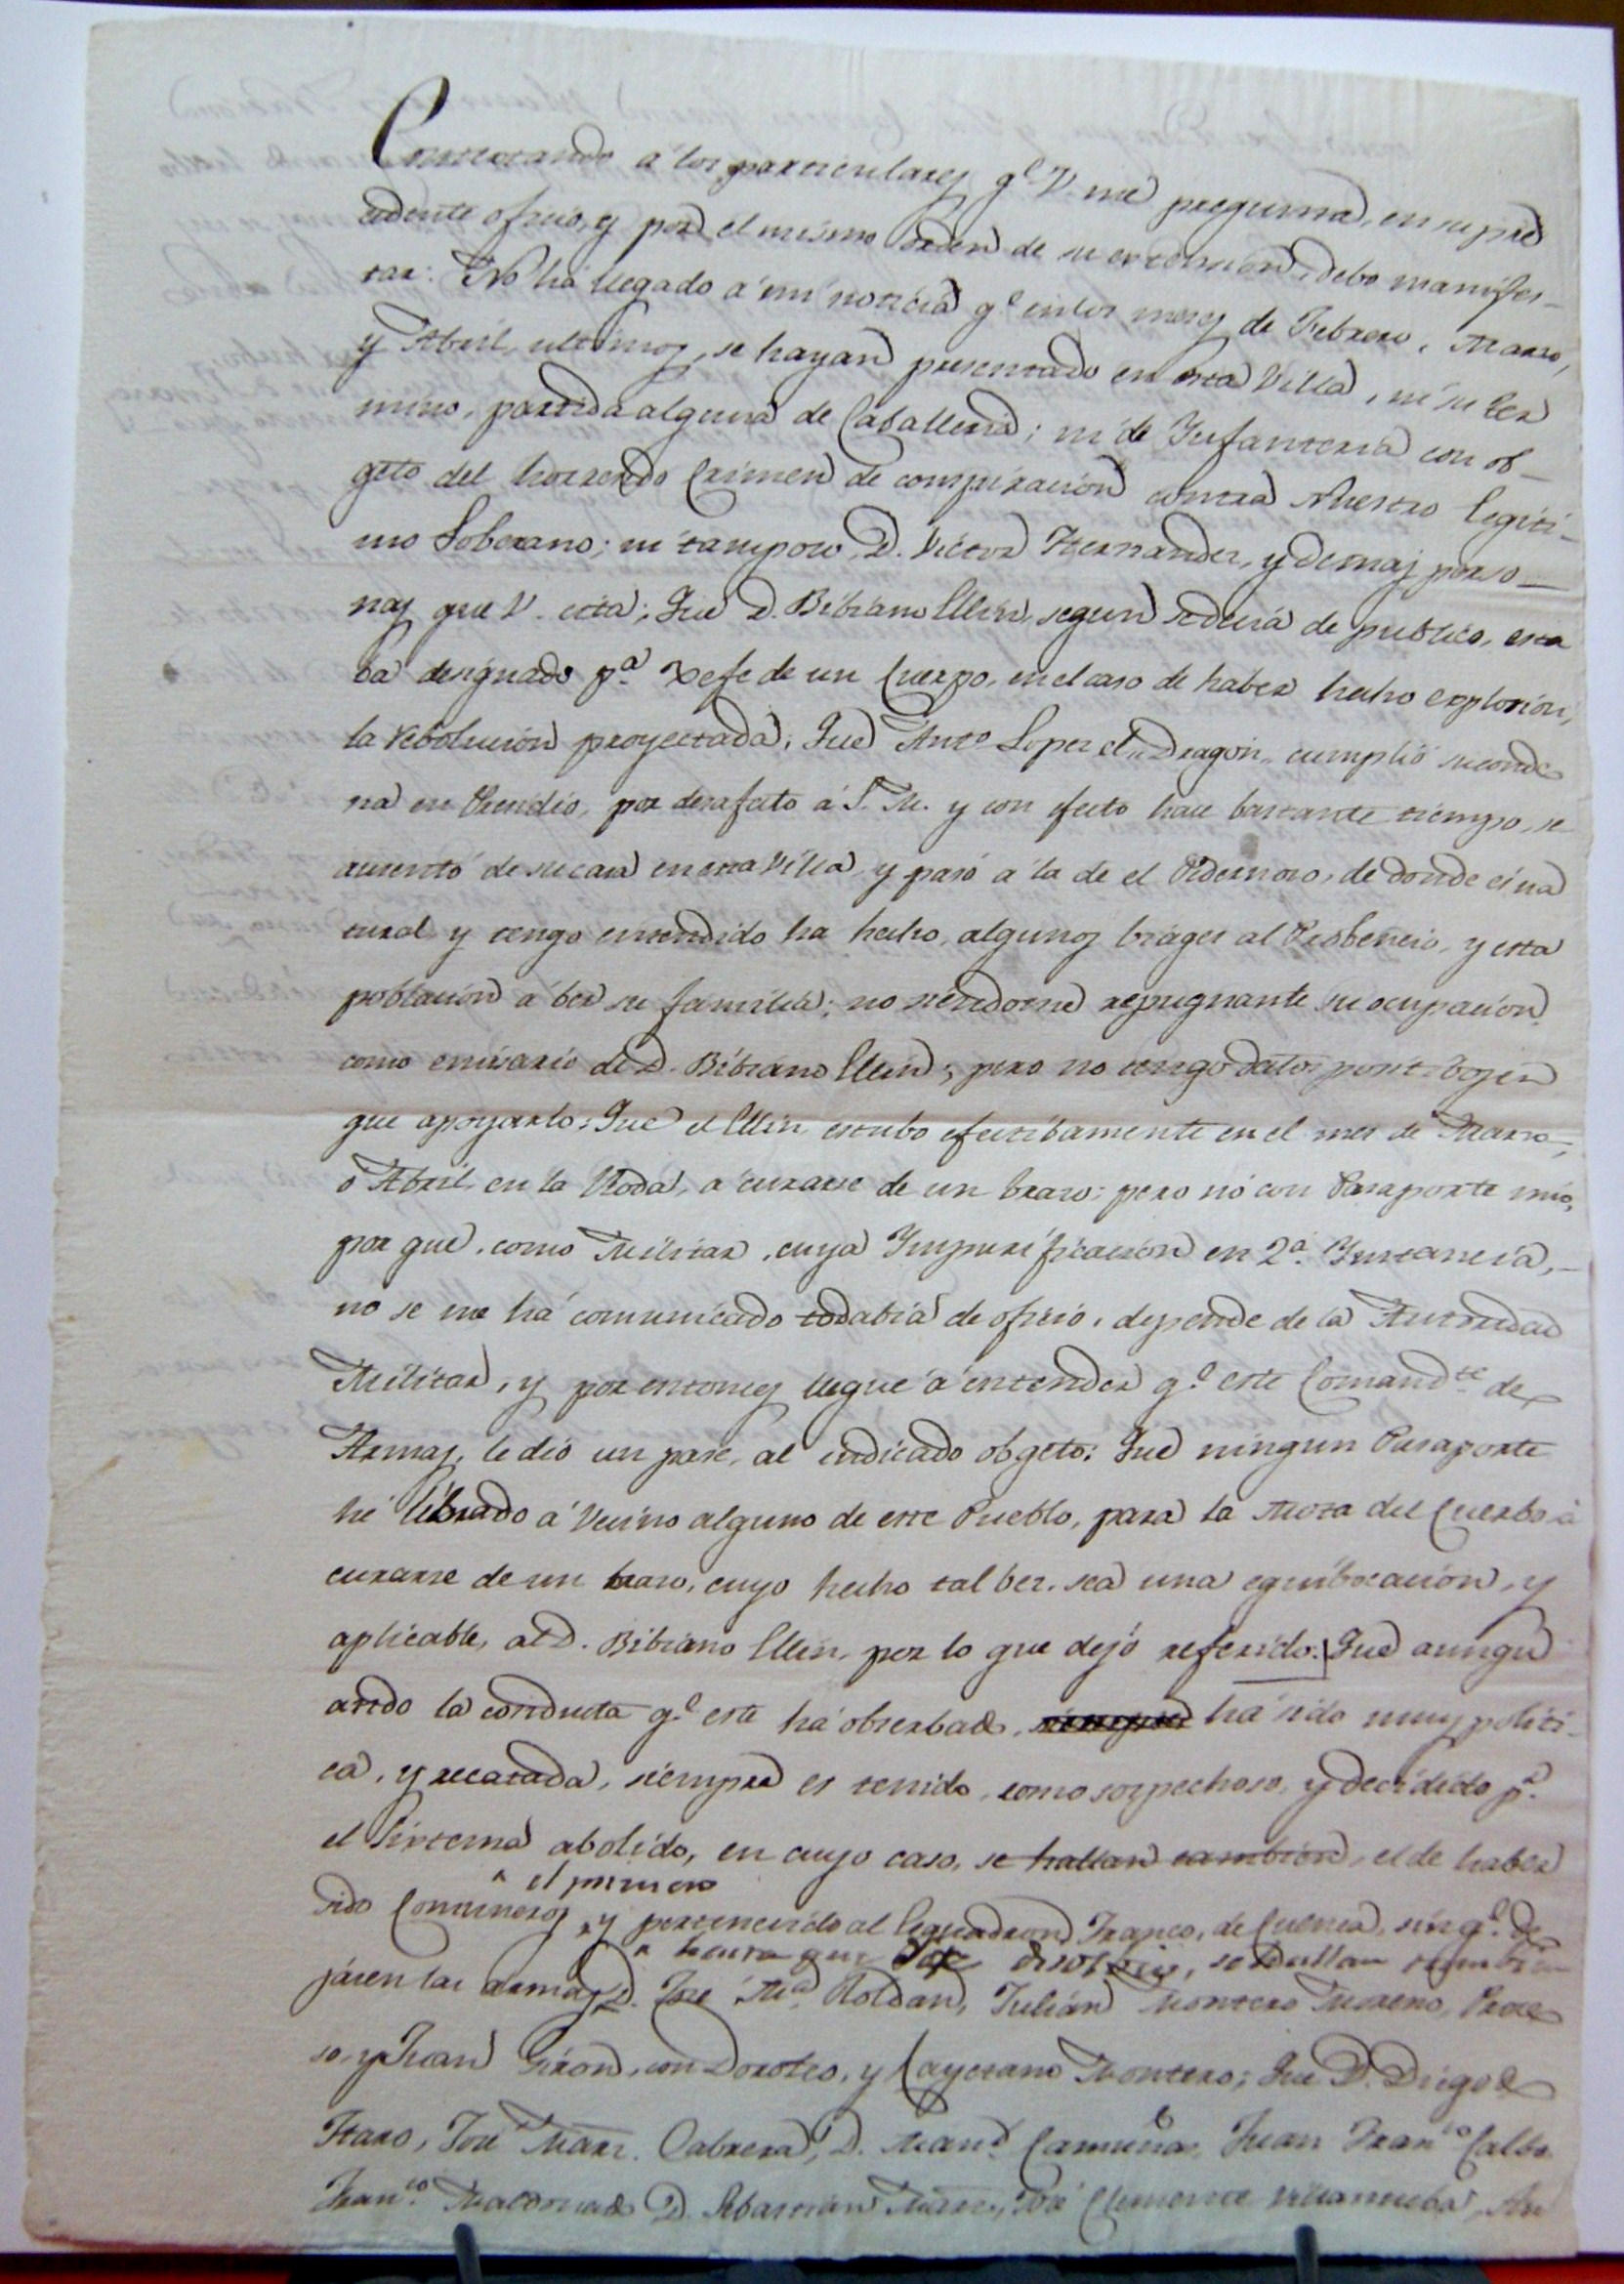 Contextando á los particulares q.e V. me pregunta, en su pre
cedente oficio, y por el mismo orden de su extension, debo manifes_
tar: No há llegado á mi noticia q.e en los meses de Febrero, Marzo,
y Abril, ultimos, se hayan presentado en esta Villa, ni su ter
mino, partida alguna de Caballeria; ni de Infanteria con ob_
geto del horrendo Crimen de conspiracion contra Nuestro Legiti_
mo Soberano; ni tampoco D. Victor Hernandez, y demas perso_
nas que V. cita; Que D. Bibiano Ellin, segun se decia de publico, esta
ba designado p.a Xefe de un Cuerpo, en el caso de haber hecho explosion,
la rebolucion proyectada; Que Ant.o Lopez el Dragon, cumplió su conde
na en Presidio, por desafecto á S. M. y con efecto hace bastante tiempo, se
ausentó de su casa en esta Villa, y pasó á la de el Pedernoso, de donde es na
tural, y tengo entendido ha hecho, algunos biages al Probencio, y esta
poblacion á ber su familia; no siendome repugnante su ocupacion
como emisario de D. Bibiano Ellin; pero no tengo datos positibos en
que apoyarlo; Que el Ellin estubo efectibamente en el mes de Marzo,
ó Abril, en la Roda, á curarse de un brazo; pero nó con Pasaporte mio,
por que, como Militar, cuya Impurificacion en 2.a Instancia,_
no se me há comunicado todabia de oficio, depende de la Autoridad
Militar, y por entonces llegue á entender q.e este Comand.te de
Armas, le dió un pase, al indicado obgeto; Que ningun Pasaporte
hé librado á Vecino alguno de este Pueblo, para la Mota del Cuerbo á
curarse de un brazo, cuyo hecho tal bez, sea una equibocacion, y
aplicable, al D. Bibiano Ellin, por lo que dejo referido: Que aunqu
ando la conducta q.e este há obserbado, siempre há sido muy politi_
ca, y recatada, siempre es tenido, como sospechoso, y decidido p.r
el Sistema abolido, en cuyo caso, se hallan tambien, el de haber
el primero
sido Comuneros, y pertenecido al Esquadron Franco, de Cuenca, sin q.e de
hasta que se disolbio, se hallan tambien
jasen las armas D. José M.a Roldan, Julián Montero Moreno, Proce
so, y Juan Giron, con Doroteo, y Cayetano Montero; Que D. Diego
Haro, José Marz. Cabrera, D. Man.l Camuñas, Juan Fran.co Calbo
Fran.co Maldonado D. Sebastian Marz., José Clemente Villanueba, An